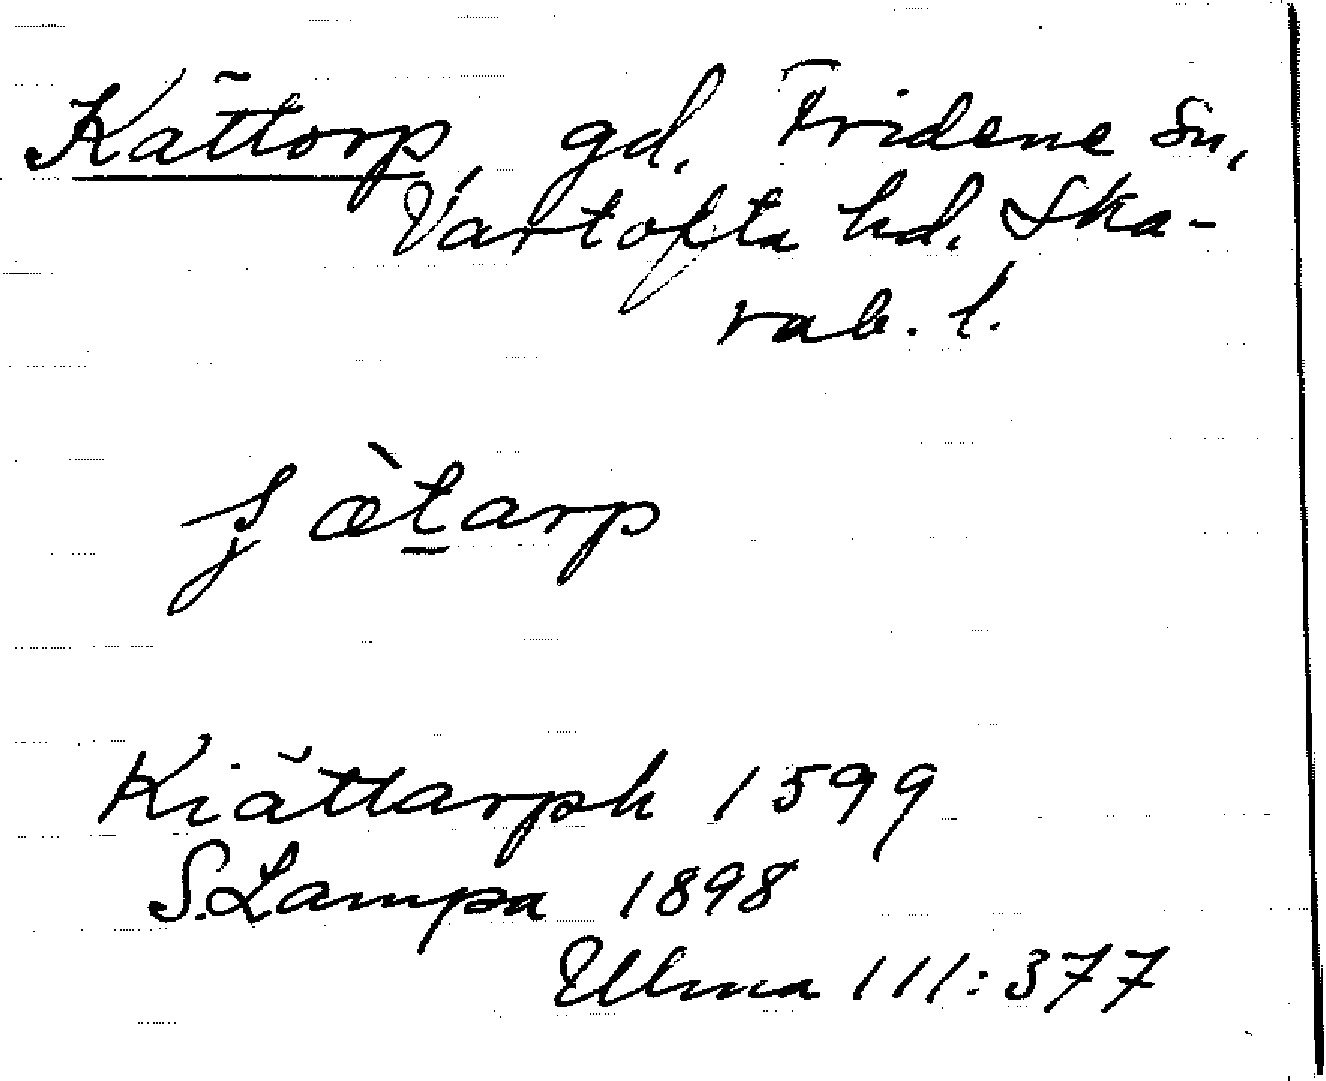 Kättorp, gd. Fridene sn,
Vartofta hd. Ska-
rab. l.
Kiättarph 1599
S. Lampa 1898
Ulma 111:377